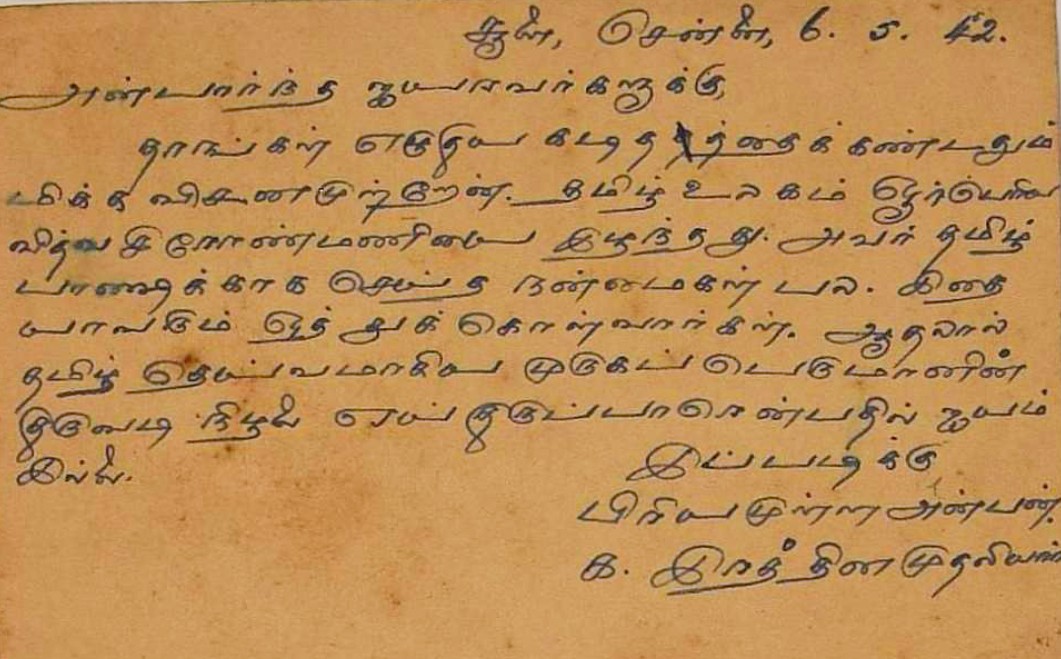 சூளை, சென்னை, 6. 5. 42.
அன்பார்ந்த ஐயாவர்களுக்கு,
தாங்கள் எழுதிய கடிதத்தைக் கண்டதும்
மிக்க விசனமுற்றேன். தமிழ் உலகம் ஓர் பெரிய
வித்வ சிரோண்மணியை இழந்தது. அவர் தமிழ்
பாஷைக்காக செய்த நன்மைகள் பல. இதை
யாவரும் ஒத்துக் கொள்வார்கள். ஆதலால்
தமிழ் தெய்வமாகிய முருகப் பெருமானின்
திருவடி நிழலை எய்திருப்பாரென்பதில் ஐயம்
இல்லை.
இப்படிக்கு
பிரியமுள்ள அன்பன்,
க. இரத்தின முதலியார்